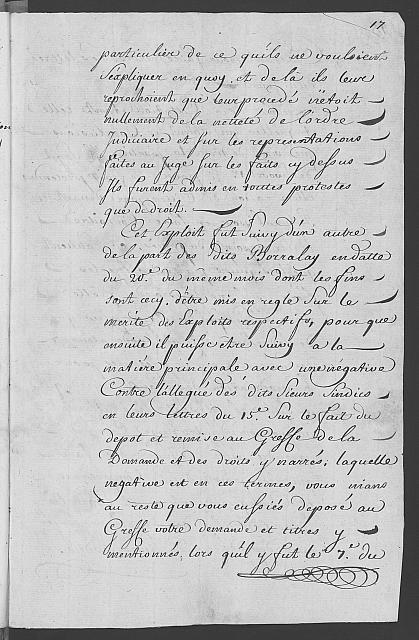 17.
particulier de ce quils ne vouloient
s'expliquer en quoy, et de la ils leur
reprochoient que leur procedé n'etoit
nullement de la neteté de l'ordre
Judiciaire et sur les representations
faites au Juge sur les faits cy dessus
Ils furent admis en toutes protestes
que de droit.
Cet Exploit fut Suivy d'un autre
de la part des dits Borralay en datte
du 20e. du meme mois dont les fins
sont cecy. d'etre mis en regle Sur le
merite des Exploits respectifs, pour que
ensuite il puisse etre Suivy a la
matiére principale avec une négative
Contre l'allegué des dits Sieurs Sindics
en leurs lettres du 15e. Sur le fait du
depot et remise au Greffe de la
Demande et des droits y narrés; laquelle
negative est en ces termes, vous nians
au reste que vous eussiés deposé au
Greffe votre demande et titres y
mentionnés, lors qu'il y fut le 7e. du